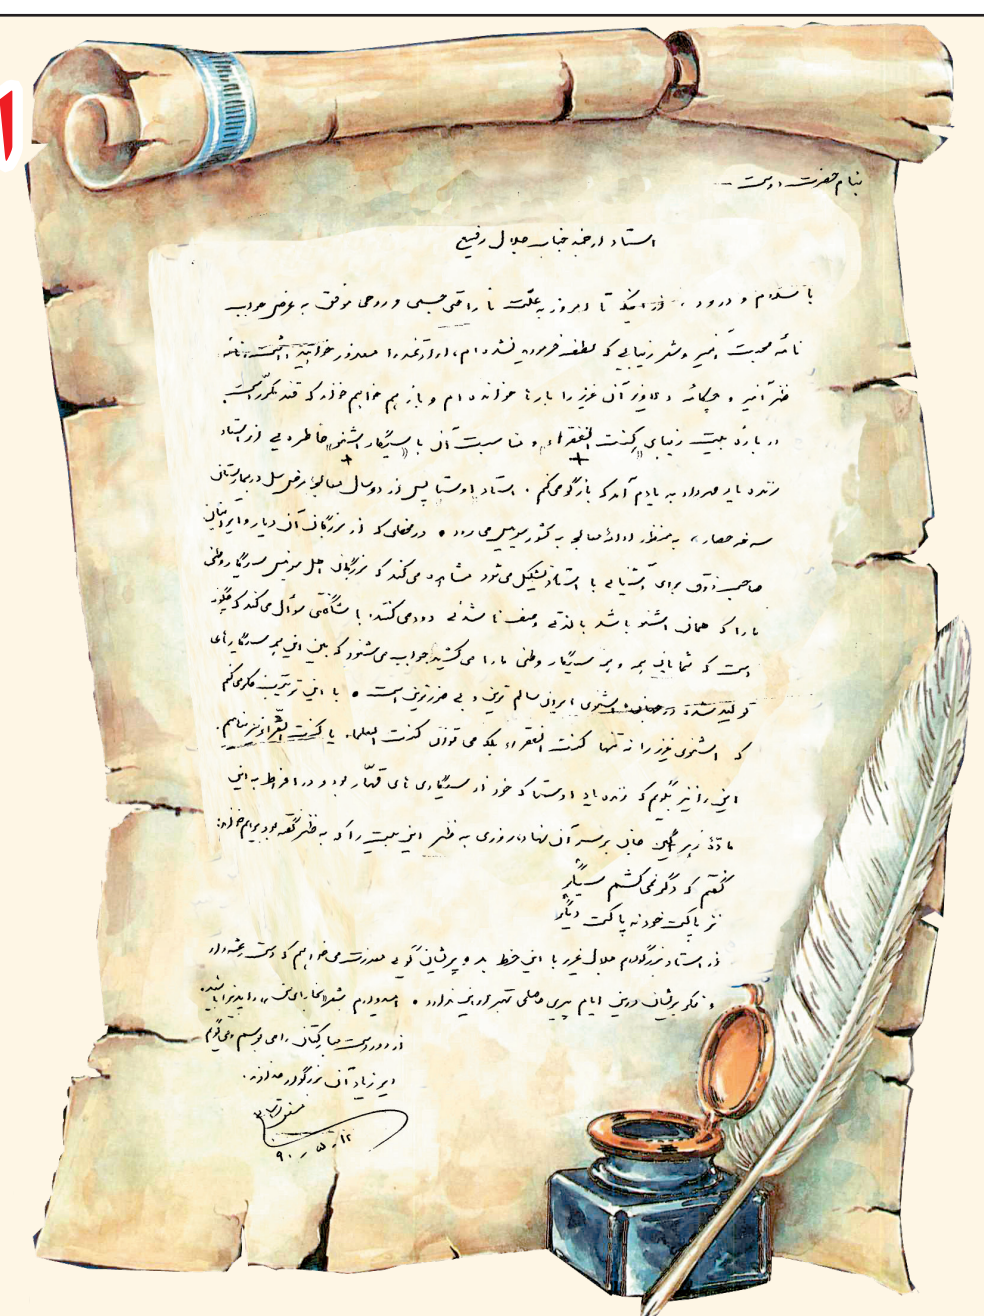 بنام حضرت دوست
استاد ارجمند جناب جلال رفیع
با سلام و درود، از اینکه تا امروز به علّت ناراحتی جسمی و روحی موفق به عرض جواب
نامه محبت آمیز و شعر زیبایی که لطف فرموده نشده ام، ارادتمند را معذور خواهید داشت. نامه
طنز آمیز و چکامه آن عزیز را بارها خوانده ام و باز هم خواهم خواند که قند مکرّر است
در باره بیت زیبای «کِنت الفقراء» و مناسبت آن با «سیگار اشنو» خاطره یی از استاد
زنده یاد مهرداد به یادم آمد که بازگو می کنم. استاد اوستا پس از دو سال معالجه مرض سل در بیمارستانی
به منظور ادامه معالجه به کشور سوییس می رود. در محفلی که از بزرگان آن دیار و ایرانیان
صاحب ذوق برای آشنایی با استاد تشکیل می شود مشاهده می کند که بزرگان اهل سوئیس سیگار وطنی
ما را که همان اشنو باشد با لذتی وصف ناشدنی دود می کنند. با شگفتی سؤال می کند که چگونه
است که شمایان همه سیگار وطنی ما را می کشید جواب می شنود که بین این همه سیگارهای
تولید شده در جهان، اشنوی ایران سالم ترین و بی ضررترین است. با این ترتیب فکر می کنم
که اشنوی عزیز را نه تنها کنت الفقراء بلکه می توان کنت العلماء یا کنت الشّعراء نیز بنامیم.
این را نیز بگویم که زنده یاد اوستا که خود از سیگاری های قهّار بود و در افراط به این
مادّهٔ زهر آگین جان بر سر آن نهاد، روزی به طنز این بیت را که به طنز گفته بود برایم خواند:
گفتم که دگر نمی کشم سیگار
نز پاکت خود نه پاکت دیگر
از استاد بزرگوارم جلال عزیز با این خط بد و پریشان گویی معذرت می خواهم که دست رعشه دار
و فکر پریشان در این ایام پیری حاصلی بهتر از این ندارد. امیدوارم شعر «بخارای من» را پذیرا باشید.
از دور دست مبارکتان را می بوسم و می گویم
ایر زیاد آن بزرگوار
۹۰/۵/۱۲